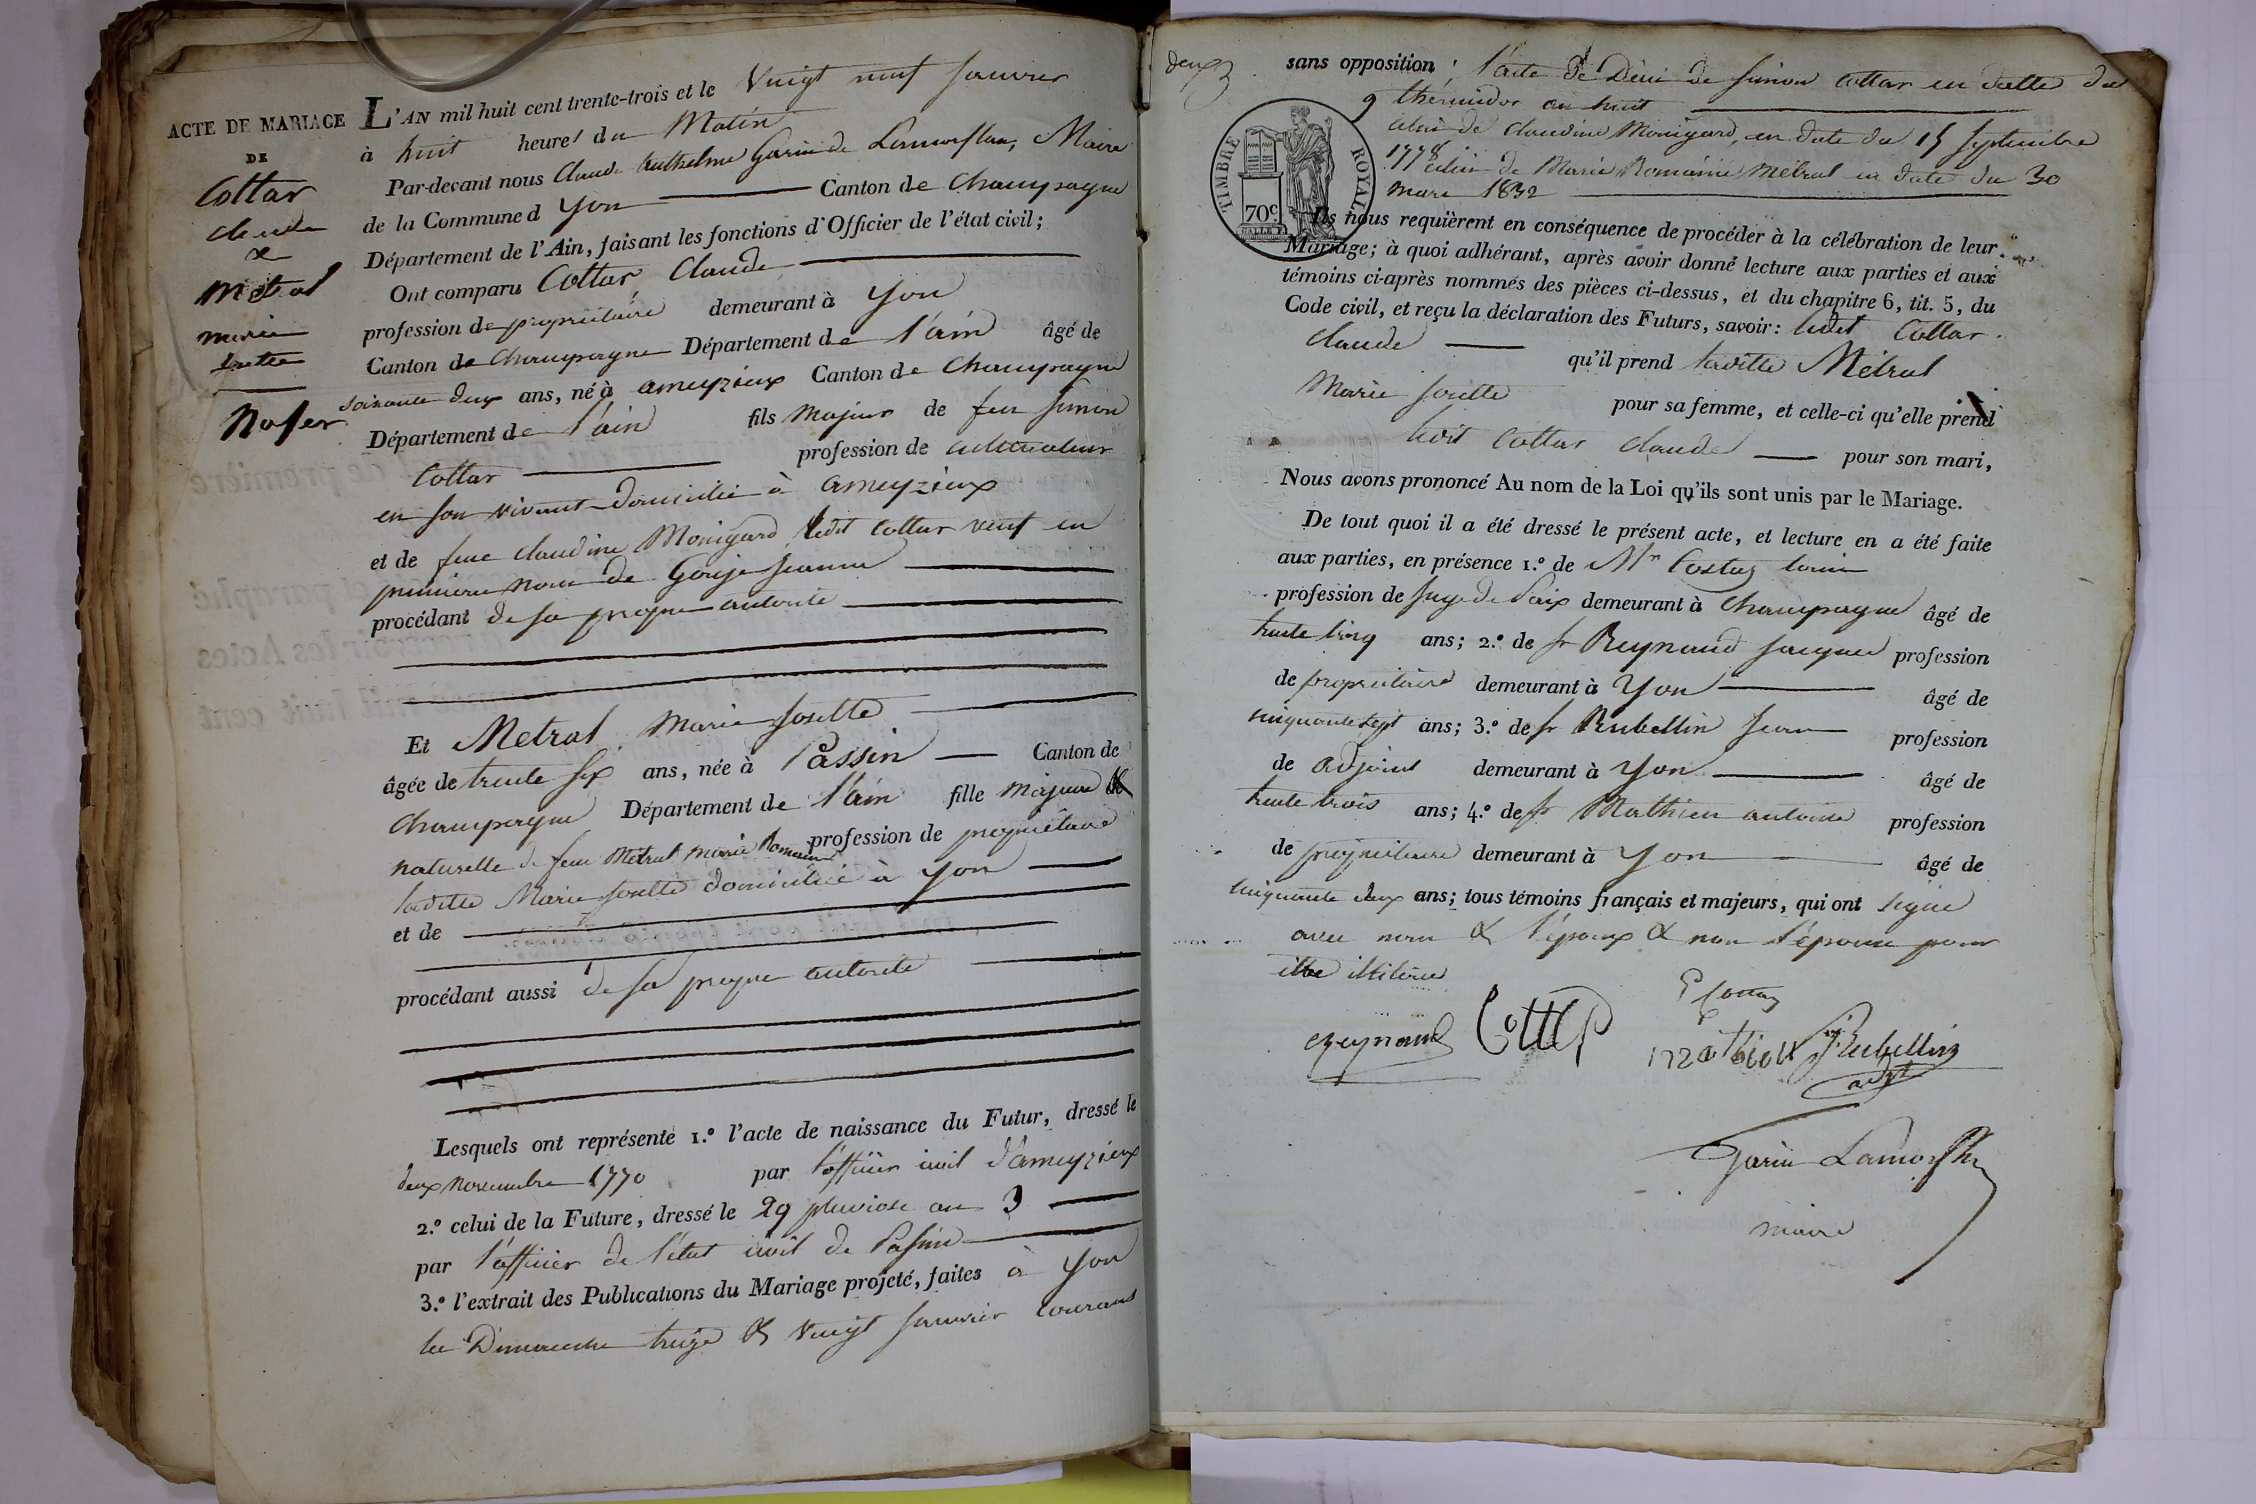 ACTE DE MARIAGE
DE
Cottar
claude
&
Métral
marie
Nofer
L'AN mil huit cent trente-trois et le Vingt neuf Janvier
à huit heures du Matin
Par-devant nous Claude Anthelme Garin de Lamorflan, Maire
de la Commune d Yon Canton de Champagne
Département de l'Ain, faisant les fonctions d'Officier de l'état civil;
Ont comparu Cottar, Claude
profession de propriétaire demeurant à Yon
Canton de Champagne Département de l'ain âgé de
soixante deux ans, né à ameyzieux Canton de Champagne
Département de l'ain fils Majeur de feu Simon
Cottar profession de cultivateur
en son vivant domicilié à ameyzieux
et de feue claudine Monigard ledit Cottar veuf en
premiere noce de Gouje Jeanne
procédant de sa propre autorité
Et Metral Marie Josette
âgée de trente six ans, née à Passin Canton de
Champagne Département de l'ain fille Majeure
naturelle de feue Métral Marie Romaine profession de propriétaire
ladite Marie Josette domiciliée à Yon
et de
procédant aussi de sa propre autorité
Lesquels ont représenté 1.º l'acte de naissance du Futur, dressé le
deux novembre 1770 par l'officier civil d'ameyzieux
2.º celui de la Future, dressé le 29 pluviose an 3
par l'officier de l'état civil de Passin
3.º l'extrait des Publications du Mariage projeté, faites à Yon
les Dimanche treize & vingt Janvier courant
deux
sans opposition; l'acte de Décè de Simon Cottar en datte du
9 thérmidor an huit
celui de claudine Monigard, en date du 15 Septembre
1778 celui de Marie Romaine Métral en date du 30
mars 1832
TIMBRE ROYAL
70c
Ils nous requièrent en conséquence de procéder à la célébration de leur
Mariage; à quoi adhérant, après avoir donné lecture aux parties et aux
témoins ci-après nommés des pièces ci-dessus, et du chapitre 6, tit. 5, du
Code civil, et reçu la déclaration des Futurs, savoir: ledit Cottar
claude qu'il prend ladite Métral
Marie Josette pour sa femme, et celle-ci qu'elle prend
ledit Cottar claude pour son mari,
Nous avons prononcé Au nom de la Loi qu'ils sont unis par le Mariage.
De tout quoi il a été dressé le présent acte, et lecture en a été faite
aux parties, en présence 1.º de Mr Costaz louis
profession de Juge de Paix demeurant à Champagne âgé de
trente cinq ans; 2.º de sr Reynaud Jacques profession
de propriétaire demeurant à Yon âgé de
cinquante sept ans; 3.º de sr Rubellin Jean profession
de adjoint demeurant à Yon âgé de
trente trois ans; 4.º de sr Mathieu antoine profession
de propriétaire demeurant à Yon âgé de
cinquante deux ans; tous témoins français et majeurs, qui ont signé
avec nous & l'époux & non l'épouse pour
être illitérée
Reynaud
Costaz
Rubellin
adjt
Garin Lamorflan
maire